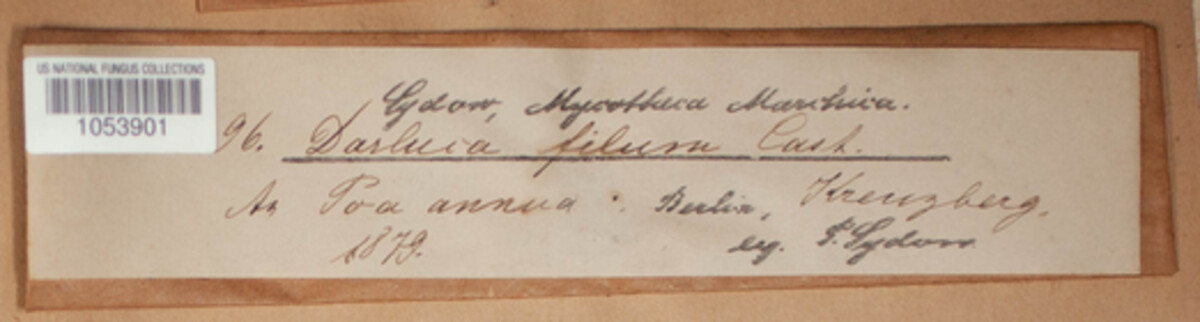 US NATIONAL FUNGUS COLLECTIONS
1053901
Sydow, Mycotheca Marchica.
96. Darluca filum Cast.
An Poa annua. Berlin, Kreuzberg.
1879. leg. P. Sydow